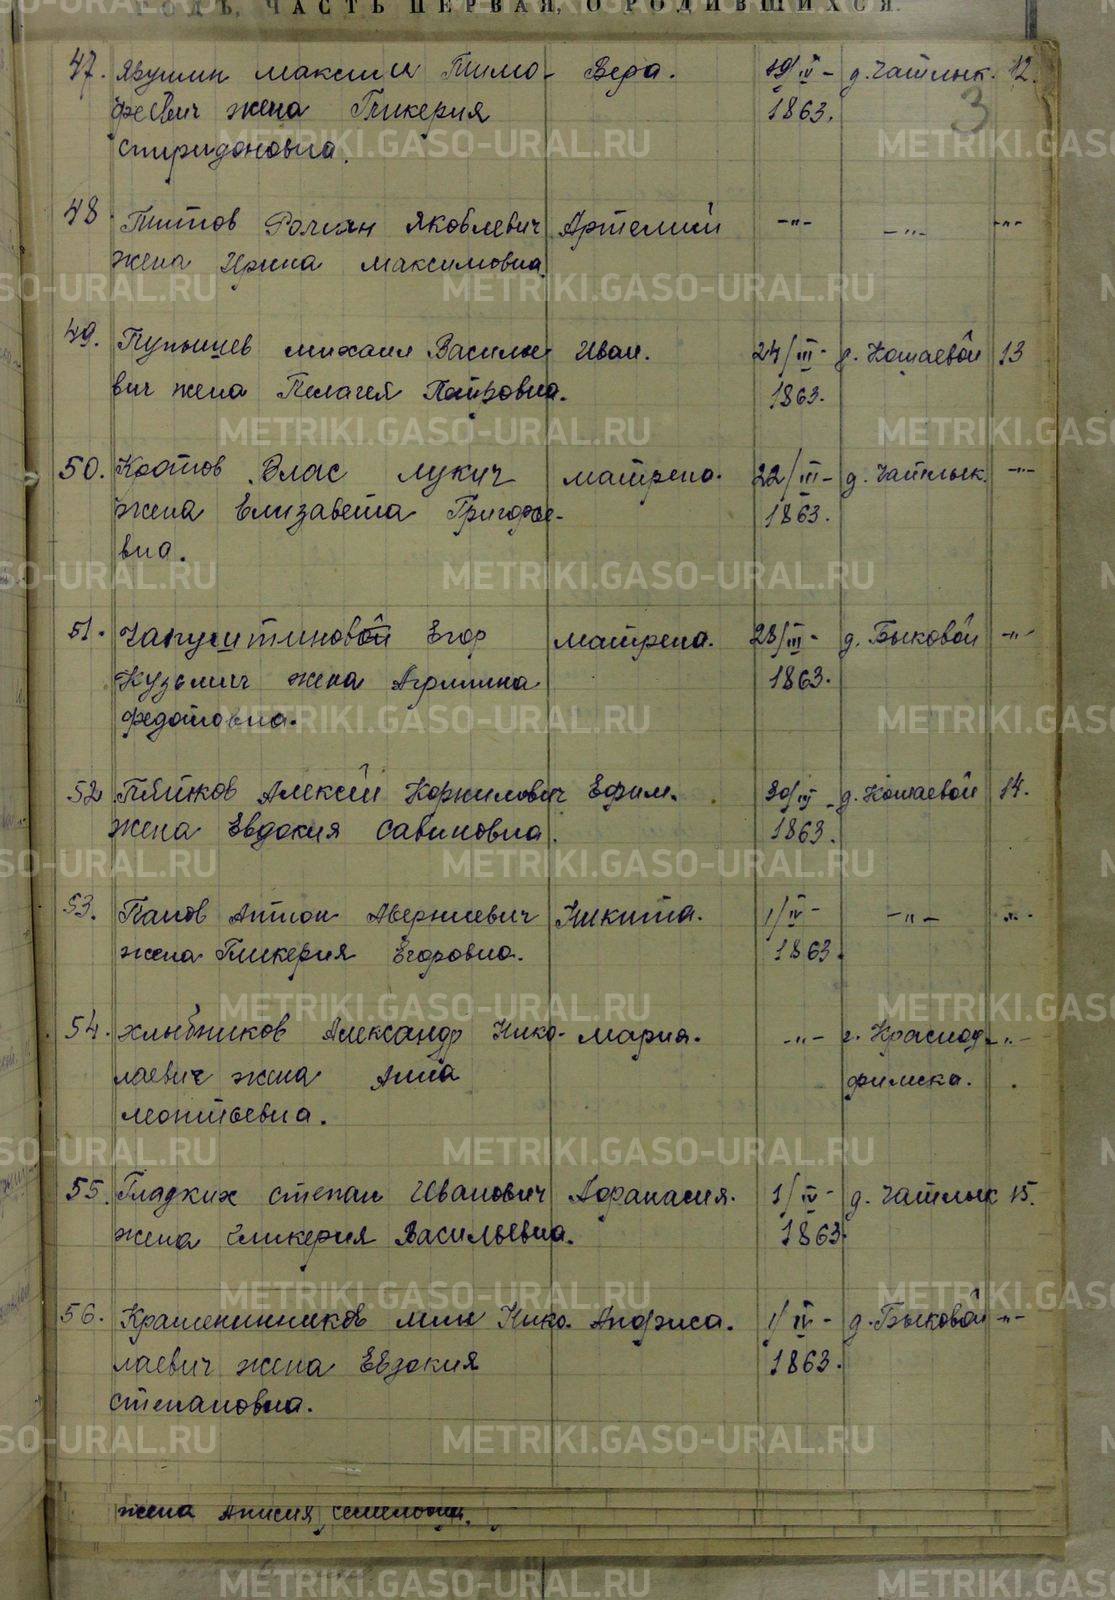 РОДЪ, ЧАСТЬ ПЕРВАЯ, О РОДИВШИХСЯ.
3
47. Явушин Максим Тимо- Вера. 19/IV- д. Чатлык. 12.
феевич жена Гликерия 1863.
Спиридоновна.
48 Титов Роман Яковлевич Артемий -"- -"- -"-
жена Ирина Максимовна.
49. Пупышев Михаил Василье Иван. 24/III- д. Кошаевой 13
вич жена Пелагея Петровна. 1863.
50. Кротов Влас Лукич Матрена. 22/III- д. Чатлык. -"-
жена Елизавета Григорье- 1863.
вна.
51. Чапуштиновой Егор Матрена. 28/III- д. Быковой -"-
Кузьмич жена Агрипина 1863.
Федотовна.
52 Алексей Корнилович Ефим. 30/III- д. Кошаевой 14.
жена Евдокия Савиновна. 1863.
53. Панов Антон Аверкиевич Никита. 1/IV- -"- -"-
жена Гликерия Егоровна. 1863.
54. Хлыбников Александр Нико- Мария. -"- г. Красноу- -"-
лаевич жена Анна фимска.
Леонтьевна.
55. Гладких Степан Иванович Афанасия. 1/IV- д. Чатлык 15.
жена Гликерия Васильевна. 1863.
56. Крашенинников Нико- Анфиса. 1/IV- д. Быковой -"-
лаевич жена Евдокия 1863.
Степановна.
жена Анисия Семеновна.
METRIKI.GASO-URAL.RU